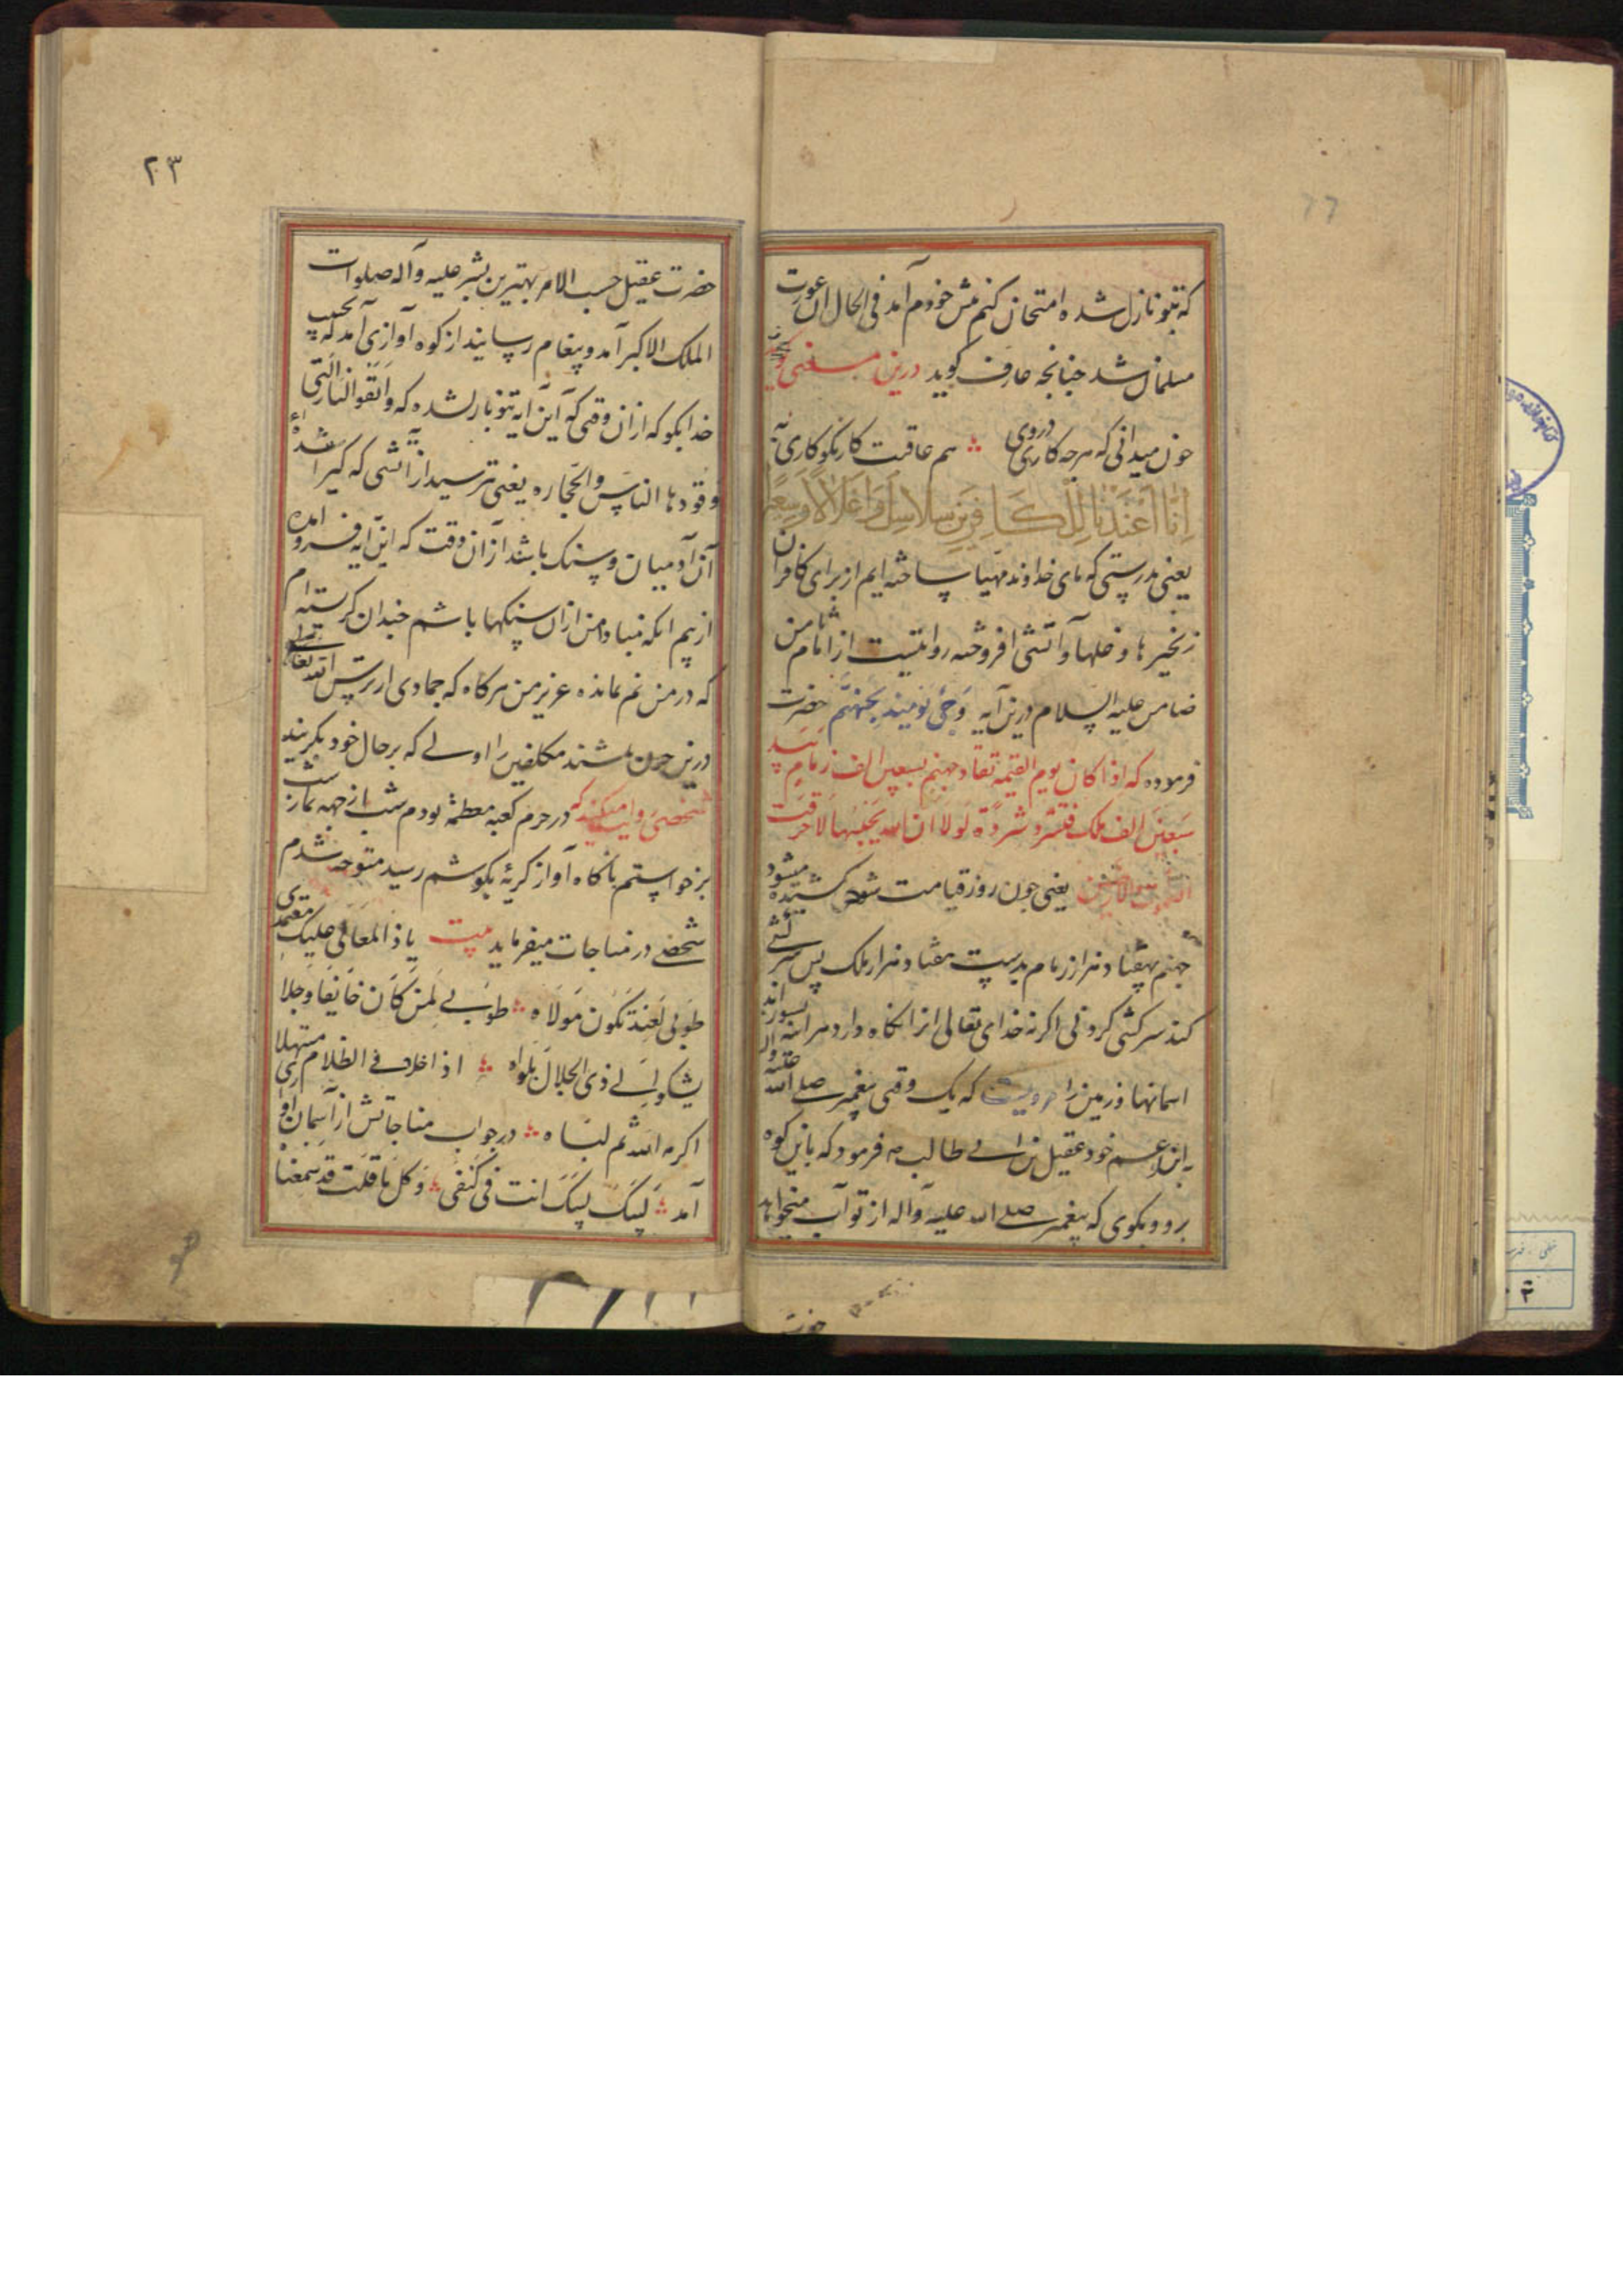 که بتو نازل شده امتحان کنم مش خودم آمد فی الحال ان عورت
مسلمان شد جنانجه عارف کوید درین معنی
جون میدانی که هرجه کاری دروی هم عاقبت کار نکوکاری به
اِنّا اَعْتَدْنا لِلْکافِرینَ سَلاسِلَ وَاَغْلالاً وَسَعیراً
یعنی بدرستی که مای خداوند مهیا ساخته ایم از برای کافران
زنجیرها و غلها و آتشی افروخته روایتست از امام ثامن
ضامن علیه السلام درین آیه وَجیَٔ یَومَئِذٍ بِجَهَنَّم حضرت
فرموده که اذا کان یوم القیمه تقاد جهنم بسبعین الف زمام بید
سَبعین الف ملک فتشرد شردةً لولا ان الله یحبسها لاحرقت
السموات والارض یعنی جون روز قیامت شود کشیده میشود
جهنم بهفتاد هزار زمام بدست هفتاد هزار ملک پس سرکشی
کند سرکشی کردنی اکرنه خدای تعالی انرا نکاه دارد هراینه بسوزاند
اسمانها و زمین را که یک وقتی پیغمبر صلی الله علیه و اله
به ابن عم خود عقیل بن ابی طالب فرمود که باین کوه
برو و بکوی که پیغمبر صلی الله علیه و آله از تو آب میخواهد
حضرت
۲۳
حضرت عقیل حسب الامر بهترین بشر علیه و آله صلوات
الملک الاکبر آمد و پیغام رسانید از کوه آوازی آمد که بحبیب
خدا بکو که ازان وقتی که این آیه بتو نازل شده که وَاتَّقُوا النّارَ الَّتی
وَقودها الناسُ والحجاره یعنی بترسید از آتشی که کیرانندهٔ
آن آدمیان و سنک باشد از آن وقت که این آیه فرو آمده
از بیم آنکه مبادا من ازان سنکها باشم جندان کریسته ام
که در من نم نمانده عزیز من هرکاه که جمادی از ترس الله تعالی
درین جون باشند مکلفین را اولی که برحال خود بکریند
شخصی روایت میکند که در حرم کعبه معظمه بودم شب از جهه نماز شب
برخواستم ناکاه آواز کریهٔ بکوشم رسید متوجه شدم
شخصی در مناجات میفرماید بیت یا ذا المعالی علیک معتمدی
طوبی لعبد تکون مولاه طوبی لمن کان خائفا وجلا
یشکو الی ذی الجلال بلواه اذا خلا فی الظلام مبتهلا
اکرمه الله ثم لباه در جواب مناجاتش از آسمان آواز
آمد لبیک لبیک انت فی کنفی وکل ما قلت قد سمعنا